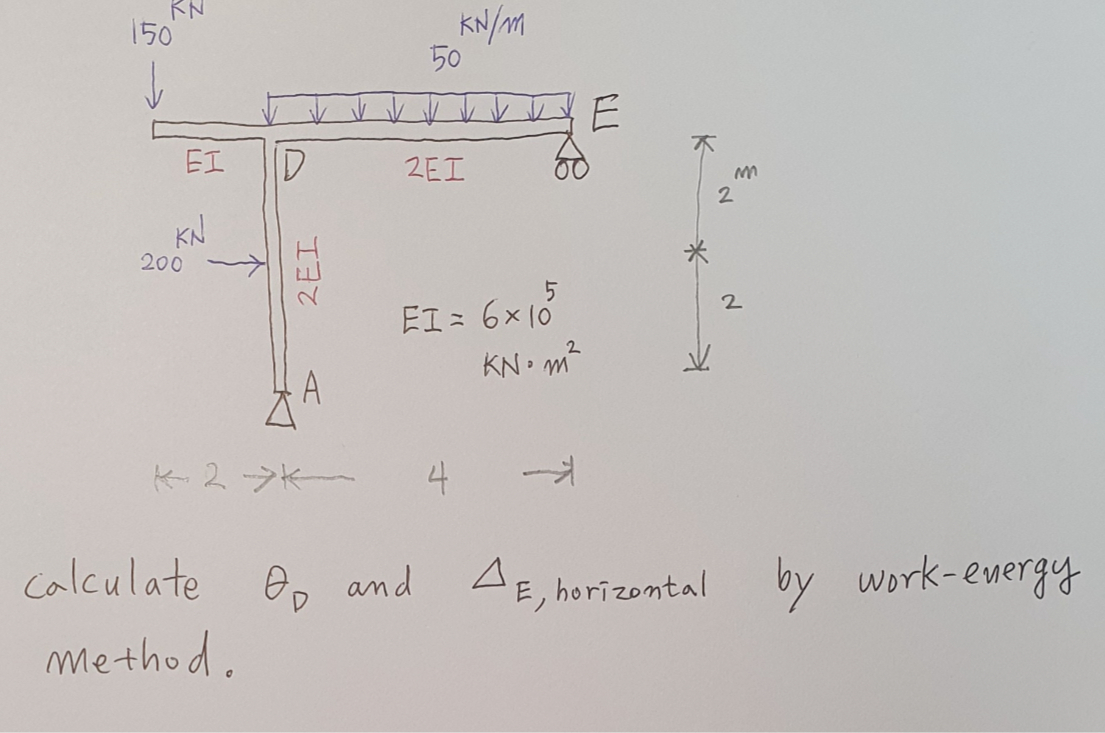 150 KN
50 KN/m
E
EI
D
2EI
2 m
200 KN
2EI
EI = 6×10⁵
KN·m²
2
A
2
4
calculate θ_D and Δ_E,horizontal by work-energy
method.